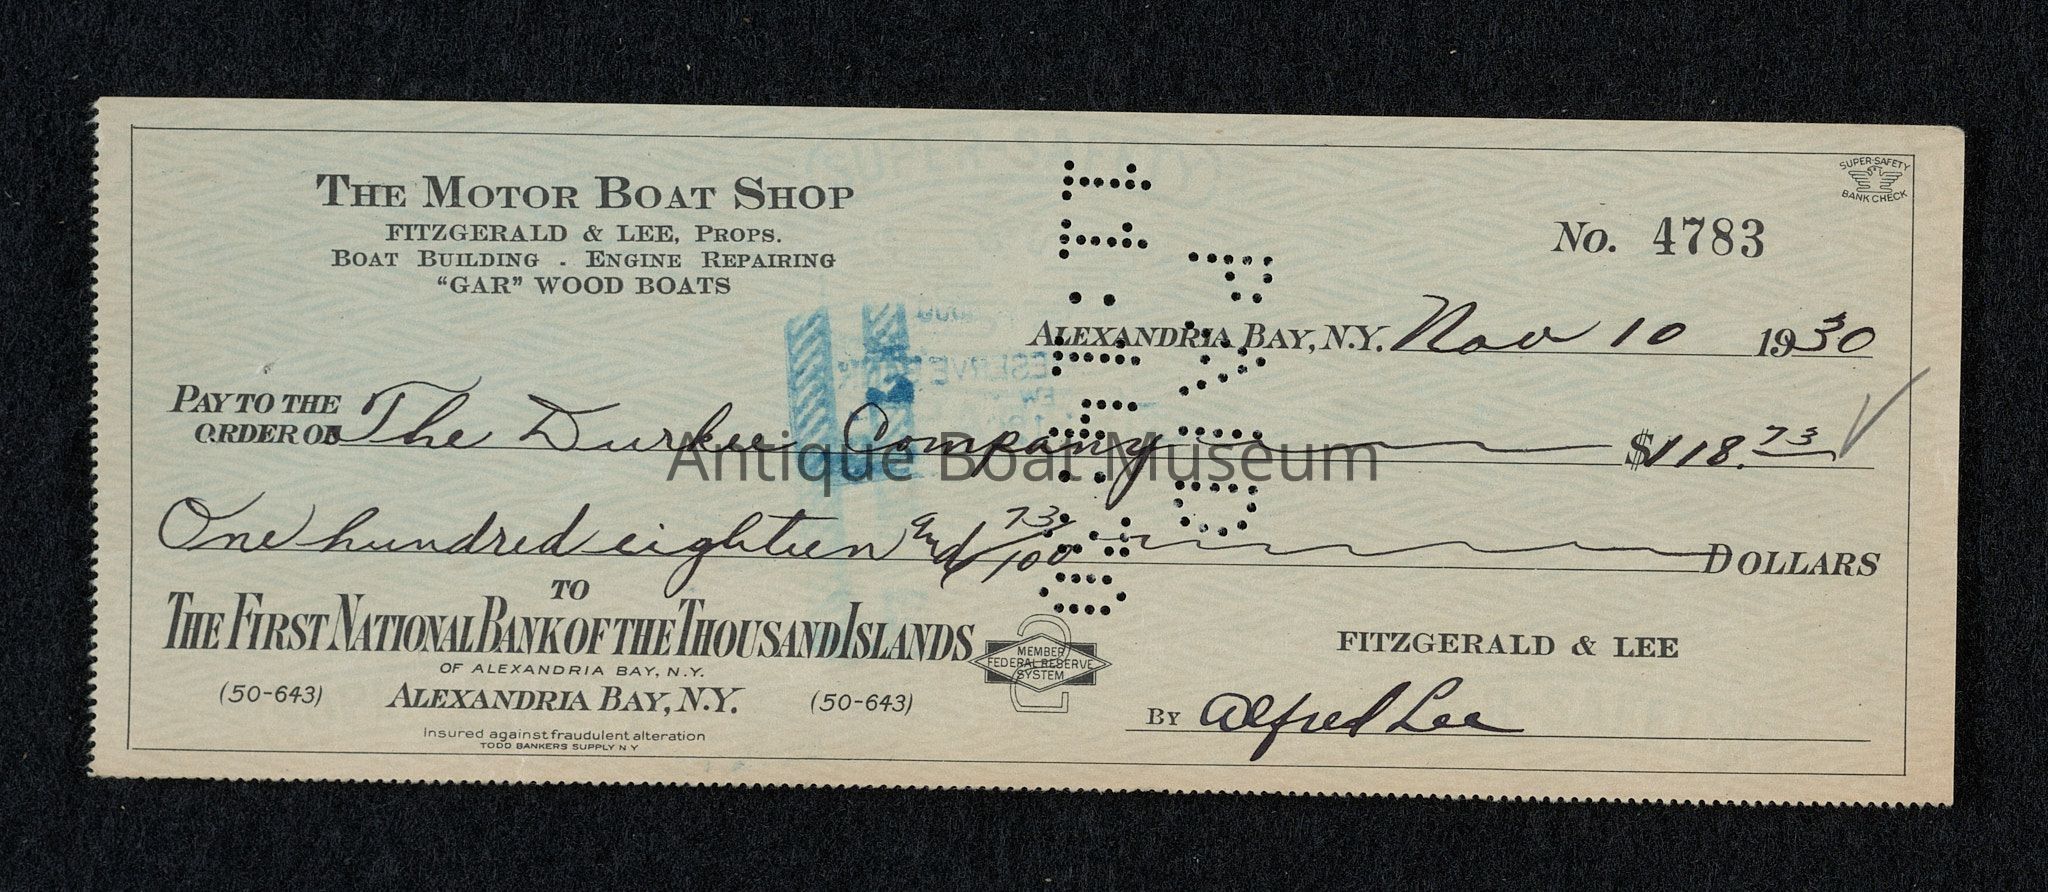 THE MOTOR BOAT SHOP
FITZGERALD & LEE, PROPS.
BOAT BUILDING . ENGINE REPAIRING
"GAR" WOOD BOATS
SUPER-SAFETY
BANK CHECK
No. 4783
ALEXANDRIA BAY, N.Y. Nov 10 1930
PAY TO THE
ORDER OF The Durkee Company $118.73
Antique Boat Museum
One hundred eighteen and 73/100 DOLLARS
TO
THE FIRST NATIONAL BANK OF THE THOUSAND ISLANDS
OF ALEXANDRIA BAY, N.Y.
(50-643) ALEXANDRIA BAY, N.Y. (50-643)
Insured against fraudulent alteration
TODD BANKERS SUPPLY N Y
MEMBER
FEDERAL RESERVE
SYSTEM
2
FITZGERALD & LEE
BY Alfred Lee
PAID